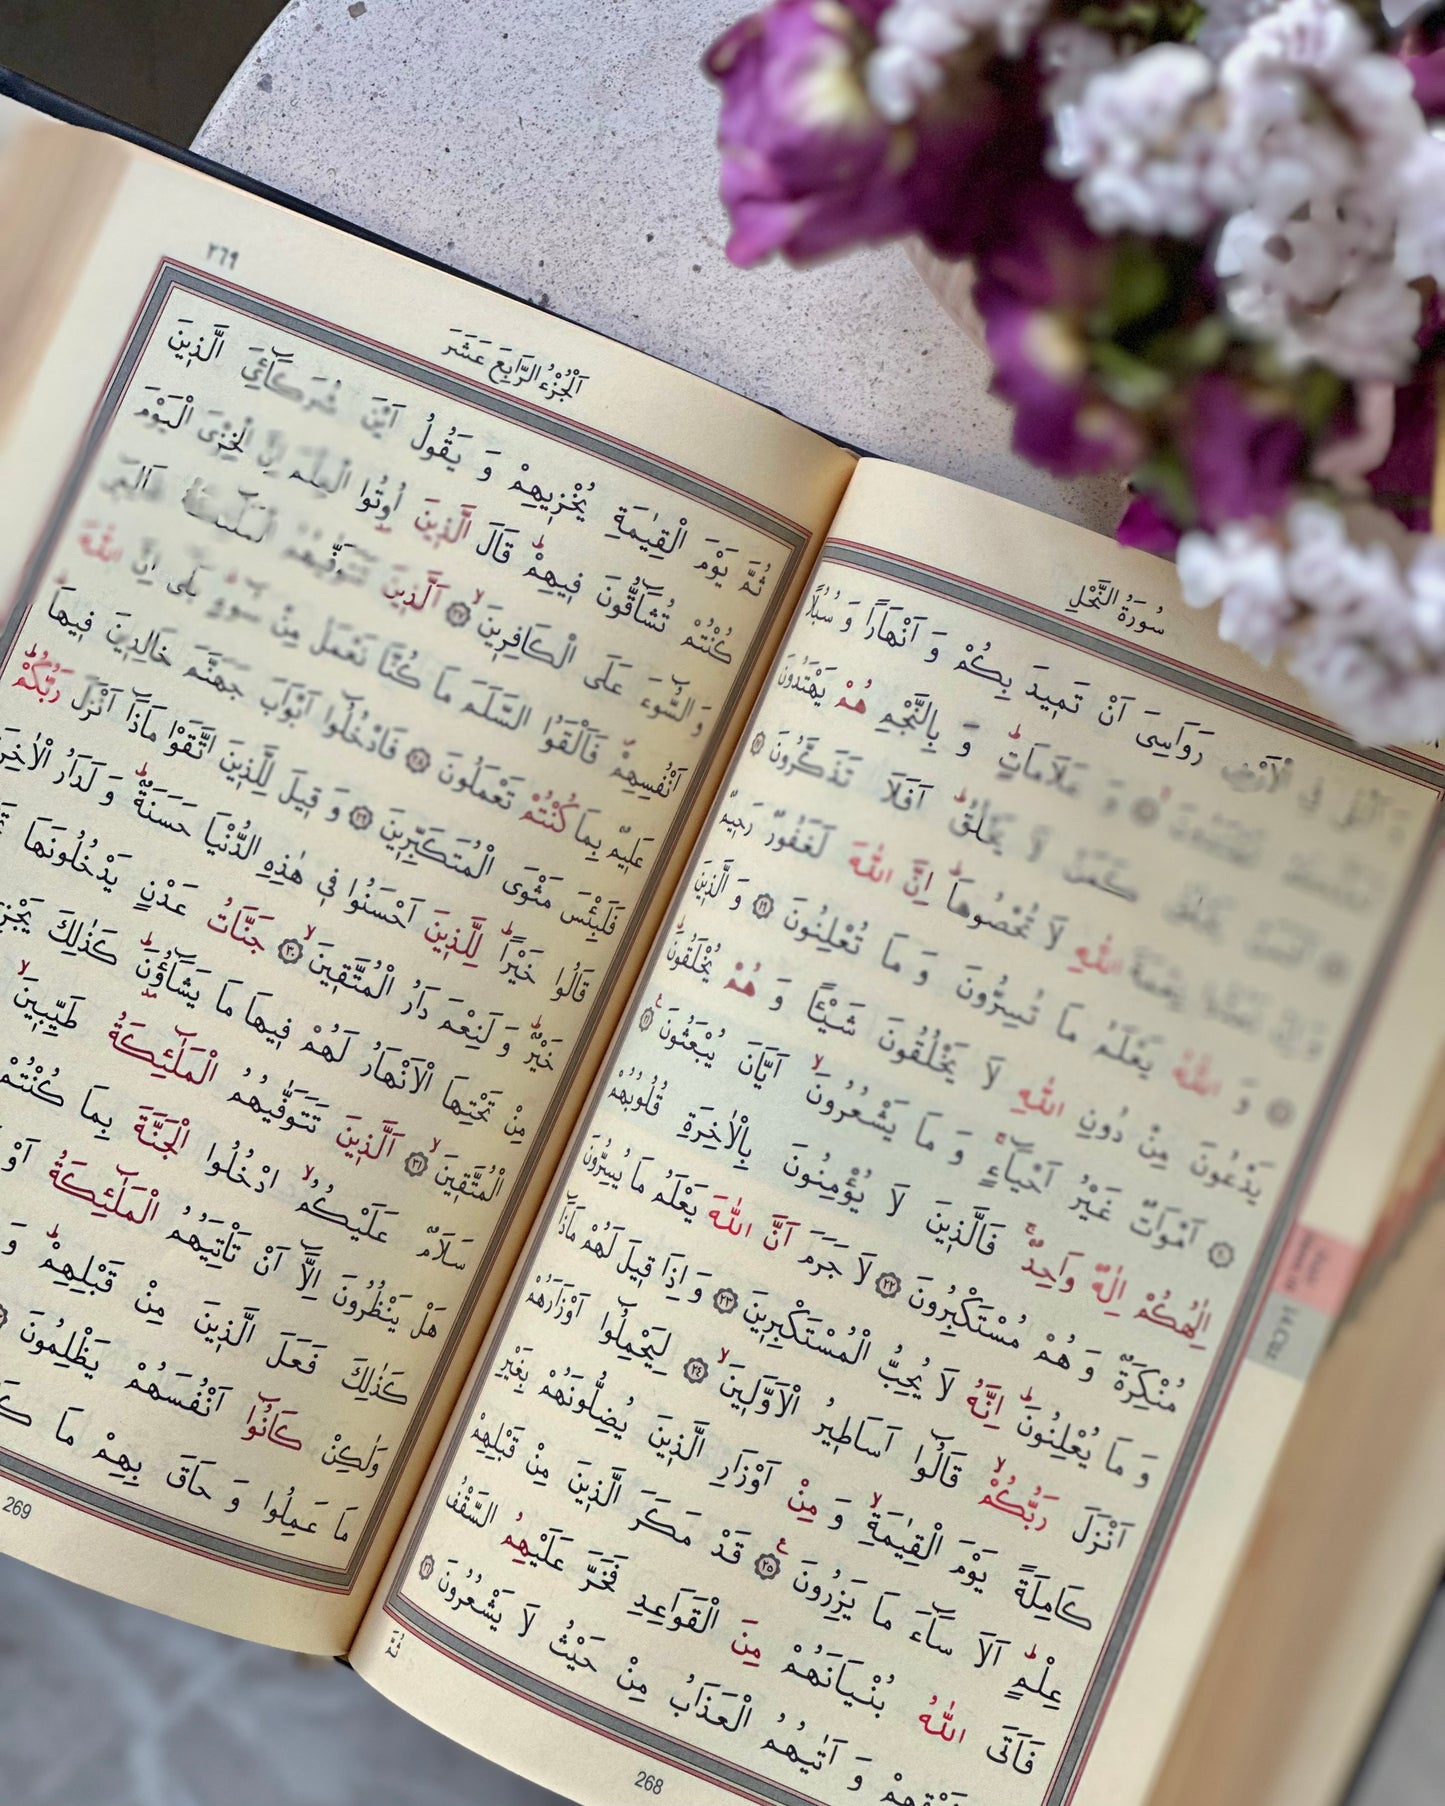 سُورَةُ النَّحْلِ
وَ اَلْقٰى فِي الْاَرْضِ رَوَاسِيَ اَنْ تَمِيدَ بِكُمْ وَ اَنْهَاراً وَ سُبُلاً
وَ عَلاَمَاتٍ وَ بِالنَّجْمِ هُمْ يَهْتَدُونَ
يَخْلُقُ كَمَنْ لاَ يَخْلُقُ اَفَلاَ تَذَكَّرُونَ ١٧
نِعْمَةَ اللهِ لاَ تُحْصُوهَا اِنَّ اللهَ لَغَفُورٌ رَحِيمٌ
وَ اللهُ يَعْلَمُ مَا تُسِرُّونَ وَ مَا تُعْلِنُونَ ١٩ وَ الَّذِينَ
يَدْعُونَ مِنْ دُونِ اللهِ لاَ يَخْلُقُونَ شَيْئًا وَ هُمْ يُخْلَقُونَ
٢٠ اَمْوَاتٌ غَيْرُ اَحْيَآءٍ وَ مَا يَشْعُرُونَ اَيَّانَ يُبْعَثُونَ ٢١
اِلٰهُكُمْ اِلٰهٌ وَاحِدٌ فَالَّذِينَ لاَ يُؤْمِنُونَ بِالْاٰخِرَةِ قُلُوبُهُمْ
مُنْكِرَةٌ وَ هُمْ مُسْتَكْبِرُونَ ٢٢ لاَ جَرَمَ اَنَّ اللهَ يَعْلَمُ مَا يُسِرُّونَ
وَ مَا يُعْلِنُونَ اِنَّهُ لاَ يُحِبُّ الْمُسْتَكْبِرِينَ ٢٣ وَ اِذَا قِيلَ لَهُمْ مَاذَآ
اَنْزَلَ رَبُّكُمْ قَالُوٓا اَسَاطِيرُ الْاَوَّلِينَ ٢٤ لِيَحْمِلُوٓا اَوْزَارَهُمْ
كَامِلَةً يَوْمَ الْقِيٰمَةِ وَ مِنْ اَوْزَارِ الَّذِينَ يُضِلُّونَهُمْ بِغَيْرِ
عِلْمٍ اَلاَ سَآءَ مَا يَزِرُونَ ٢٥ قَدْ مَكَرَ الَّذِينَ مِنْ قَبْلِهِمْ
فَاَتَى اللهُ بُنْيَانَهُمْ مِنَ الْقَوَاعِدِ فَخَرَّ عَلَيْهِمُ السَّقْفُ
وَ اَتٰيهُمُ الْعَذَابُ مِنْ حَيْثُ لاَ يَشْعُرُونَ ٢٦
ثُمَّ
268
٢٦٩
اَلْجُزْءُ الرَّابِعَ عَشَرَ
ثُمَّ يَوْمَ الْقِيٰمَةِ يُخْزِيهِمْ وَ يَقُولُ اَيْنَ شُرَكَآئِيَ الَّذِينَ
كُنْتُمْ تُشَآقُّونَ فِيهِمْ قَالَ الَّذِينَ اُوتُوا الْعِلْمَ اِنَّ الْخِزْيَ الْيَوْمَ
وَ السُّوٓءَ عَلَى الْكَافِرِينَ ٢٧ اَلَّذِينَ تَتَوَفّٰيهُمُ الْمَلٰٓئِكَةُ ظَالِمِٓي
اَنْفُسِهِمْ فَاَلْقَوُا السَّلَمَ مَا كُنَّا نَعْمَلُ مِنْ سُوٓءٍ بَلٰٓى اِنَّ اللهَ
عَلِيمٌ بِمَا كُنْتُمْ تَعْمَلُونَ ٢٨ فَادْخُلُوٓا اَبْوَابَ جَهَنَّمَ خَالِدِينَ فِيهَا
فَلَبِئْسَ مَثْوَى الْمُتَكَبِّرِينَ ٢٩ وَ قِيلَ لِلَّذِينَ اتَّقَوْا مَاذَآ اَنْزَلَ رَبُّكُمْ
قَالُوا خَيْراً لِلَّذِينَ اَحْسَنُوا فِي هٰذِهِ الدُّنْيَا حَسَنَةٌ وَ لَدَارُ الْاٰخِرَةِ
خَيْرٌ وَ لَنِعْمَ دَارُ الْمُتَّقِينَ ٣٠ جَنَّاتُ عَدْنٍ يَدْخُلُونَهَا
مِنْ تَحْتِهَا الْاَنْهَارُ لَهُمْ فِيهَا مَا يَشَآؤُنَ كَذٰلِكَ
الْمُتَّقِينَ ٣١ اَلَّذِينَ تَتَوَفّٰيهُمُ الْمَلٰٓئِكَةُ طَيِّبِينَ
سَلاَمٌ عَلَيْكُمُ ادْخُلُوا الْجَنَّةَ بِمَا كُنْتُمْ
هَلْ يَنْظُرُونَ اِلَّآ اَنْ تَاْتِيَهُمُ الْمَلٰٓئِكَةُ اَوْ
كَذٰلِكَ فَعَلَ الَّذِينَ مِنْ قَبْلِهِمْ وَ
وَلٰكِنْ كَانُوٓا اَنْفُسَهُمْ يَظْلِمُونَ
مَا عَمِلُوا وَ حَاقَ بِهِمْ مَا
269